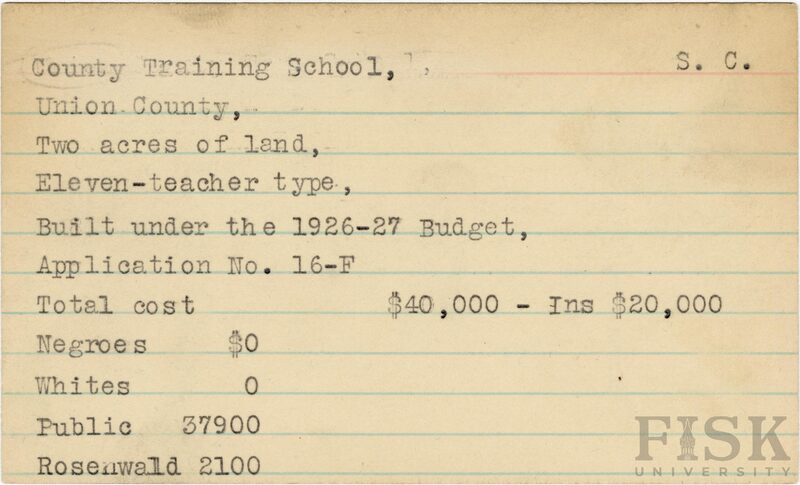 County Training School,                    S. C.
Union County,
Two acres of land,
Eleven-teacher type,
Built under the 1926-27 Budget,
Application No. 16-F
Total cost                    $40,000 - Ins $20,000
Negroes      $0
Whites        0
Public    37900
Rosenwald 2100
FISK
UNIVERSITY